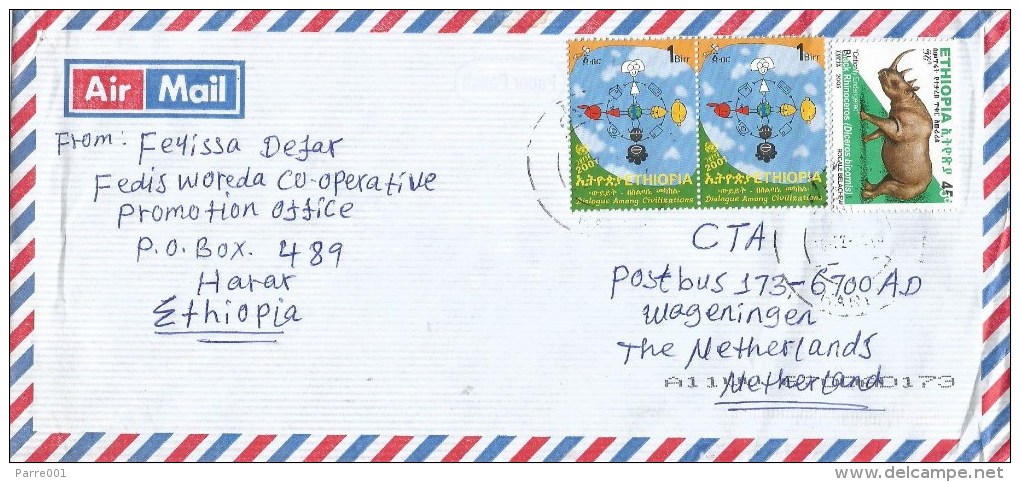 Air Mail
From: Feyissa Defar
Fedis Woreda CO-operative
Promotion Office
P.O.Box. 489
Harar
Ethiopia
1 Birr
2001
ኢትዮጵያ ETHIOPIA
Dialogue Among Civilizations
1 Birr
2001
ኢትዮጵያ ETHIOPIA
Dialogue Among Civilizations
ETHIOPIA ኢትዮጵያ
Black Rhinoceros (Diceros bicornis)
2005
45c
CTA
Postbus 173,-6700 AD
Wageningen
The Netherlands
Netherland
Parre001
www.delcampe.net